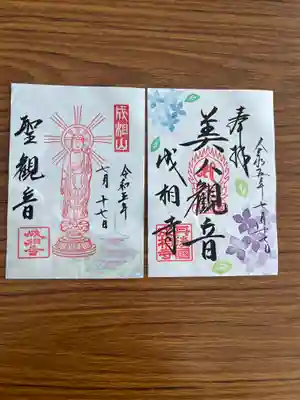 成相山
令和五年
七月十七日
聖觀音
成相寺
奉拝
令和五年七月十七日
美人觀音
成相寺